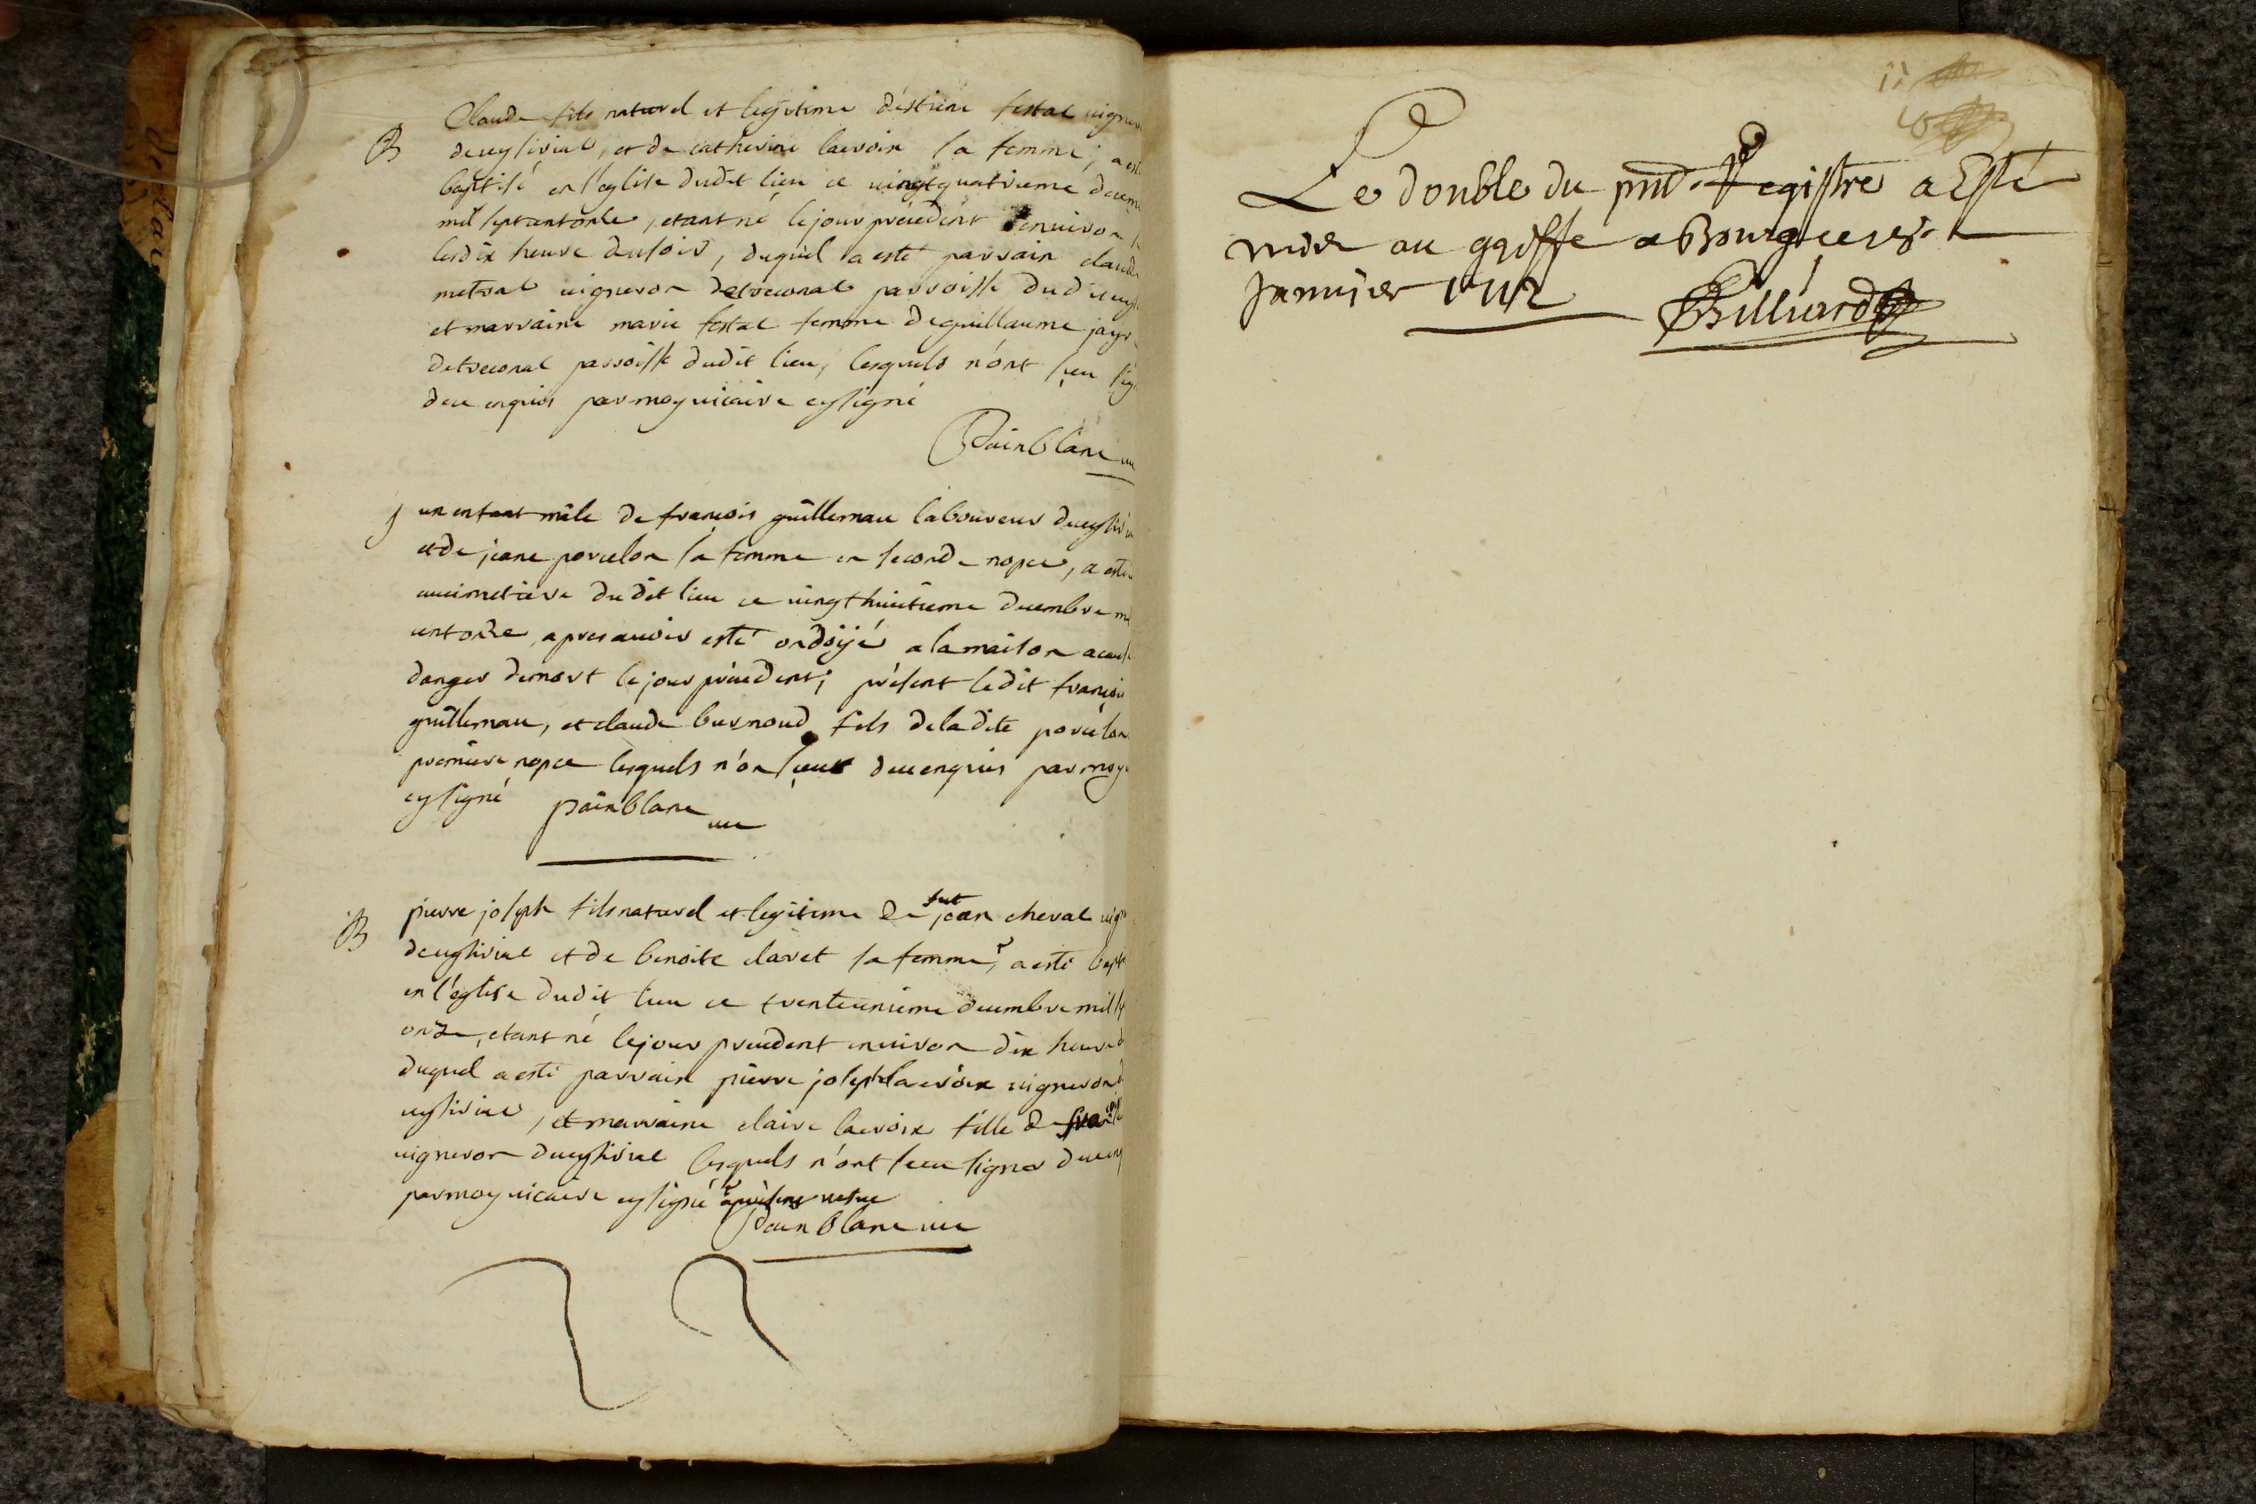 B
Claude fils naturel et legitime d'estiene festal vigner
de ceyssiriat, et de catherine lacroix sa femme, a est
baptisé en l'eglise dudit lieu ce vingtquatrieme decem
mil sept cent onze, etant né le jour précédent environ
les dix heure du soir, duquel a esté parrain claude
metral vigneron de treconal parroisse dud
et marraine marie festal femme de guillaume
de treconal parroisse dudit lieu, lesquels n'ont sceu sig
de ce enquis par moy vicaire cy signé
Painblanc vic
j
un enfant mâle de françois guillemau laboureur de ceyssir
et de jeane porcelon sa femme en seconde nopce, a esté
au cimetiere du dit lieu ce vingt huitieme decembre m
cent onze, apres avoir esté ondoijé a la maison a cause
danger de mort le jour précédent; présent ledit françoi
guillemau, et claude burnoud fils de ladite porcelon
premiere nopce lesquels n'on sceus de ce enquis par moy
cy signé painblanc vic
B
pierre joseph fils naturel et legitime de fut jean cheval vign
de ceyssiriat et de benoite claret sa femme, a esté bapt
en l'eglise dudit lieu ce trenteunieme decembre mil s
onze, etant né le jour precedent environ dix heure d
duquel a esté parrain pierre joseph lacroix vigneron d
ceyssiriat, et marraine claire lacroix fille de
vigneron de ceyssiriat lesquels n'ont sceu signer de ce enq
par moy vicaire cy signé
Painblanc vic
11
Le double du pnt Registre a Esté
mis au greffe a Bourg ce
Janvier 1712 Billiard